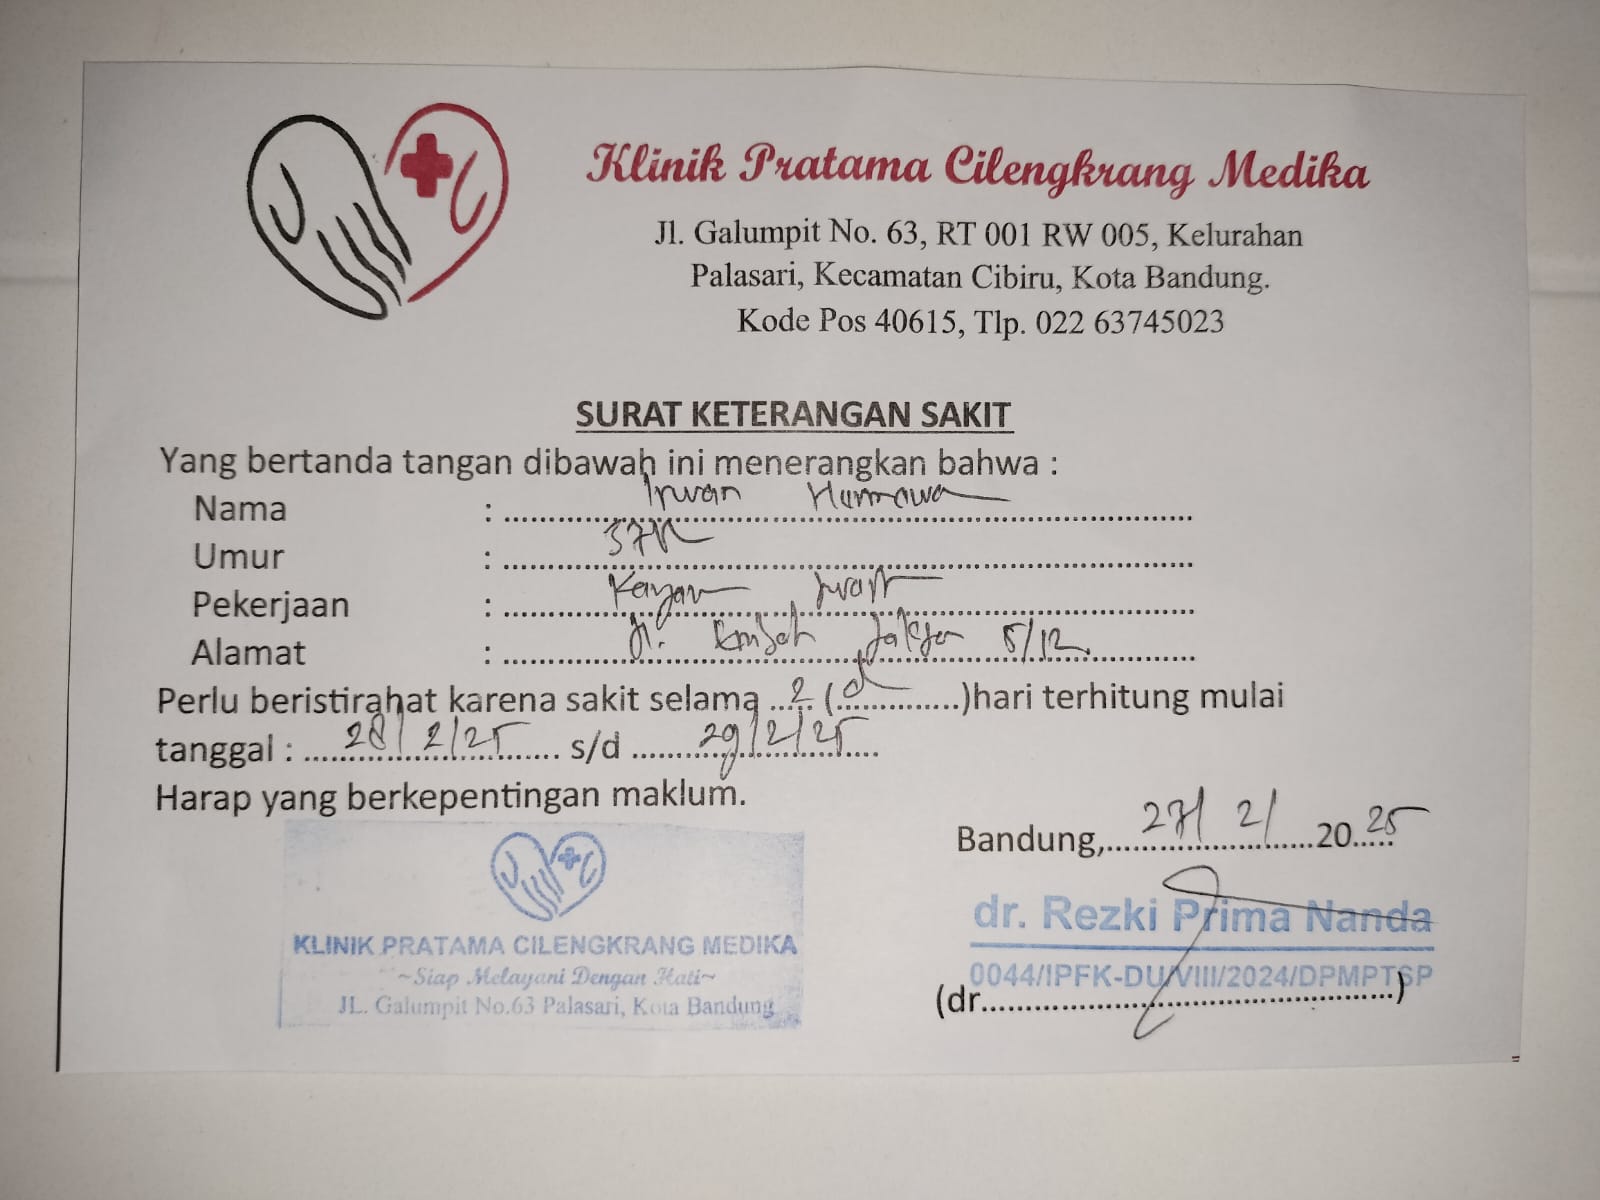 Klinik Pratama Cilengkrang Medika
Jl. Galumpit No. 63, RT 001 RW 005, Kelurahan
Palasari, Kecamatan Cibiru, Kota Bandung.
Kode Pos 40615, Tlp. 022 63745023
SURAT KETERANGAN SAKIT
Yang bertanda tangan dibawah ini menerangkan bahwa :
Nama : Irwan
Umur : 37
Pekerjaan :
Alamat : Jl. 5/12
Perlu beristirahat karena sakit selama 2 (............)hari terhitung mulai
tanggal : 28/2/25 s/d 29/2/25
Harap yang berkepentingan maklum.
Bandung, 27/2/ 2025
KLINIK PRATAMA CILENGKRANG MEDIKA
~Siap Melayani Dengan Hati~
JL. Galumpit No.63 Palasari, Kota Bandung
dr. Rezki Prima Nanda
0044/IPFK-DU/VIII/2024/DPMPTSP
(dr............................................)